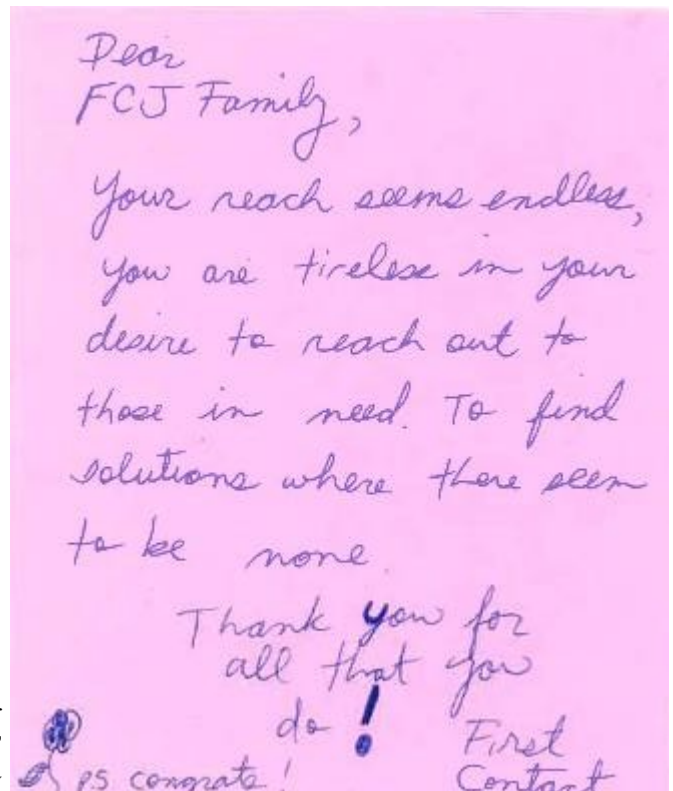 Dear
FCJ Family,
Your reach seems endless,
you are tireless in your
desire to reach out to
those in need. To find
solutions where there seem
to be none.
Thank you for
all that you
do!
First
P.S. congrats!
Contact